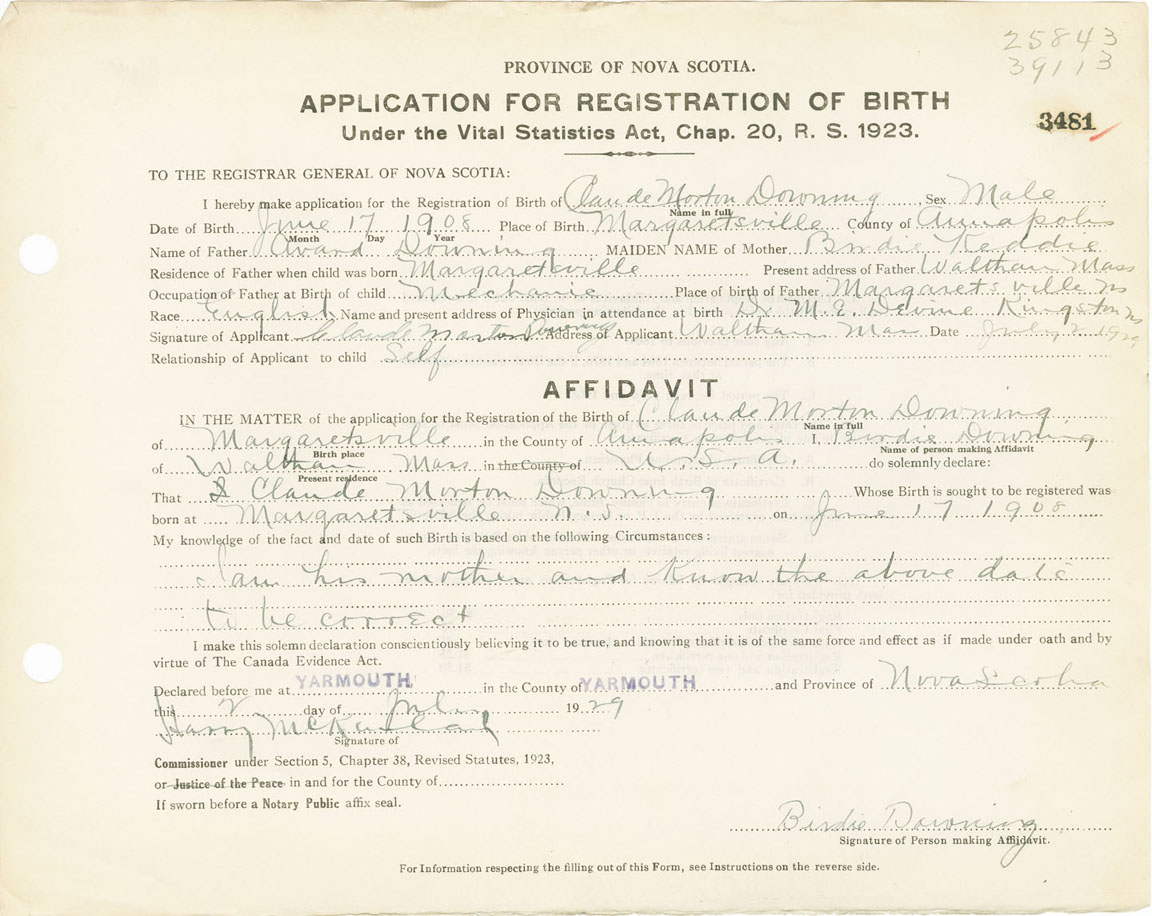 25843
39113
PROVINCE OF NOVA SCOTIA.
APPLICATION FOR REGISTRATION OF BIRTH
3481
Under the Vital Statistics Act, Chap. 20, R. S. 1923.
TO THE REGISTRAR GENERAL OF NOVA SCOTIA:
I hereby make application for the Registration of Birth of Claude Morton Downing Sex Male
Name in full
Date of Birth June 17 1908 Place of Birth Margaretsville County of Annapolis
Month Day Year
Name of Father Avard Downing MAIDEN NAME of Mother Birdie Keddie
Residence of Father when child was born Margaretsville Present address of Father Waltham Mass
Occupation of Father at Birth of child Mechanic Place of birth of Father Margaretsville NS
Race English Name and present address of Physician in attendance at birth Dr M.E. Devine Kingston NS
Signature of Applicant Claude Morton Downing Address of Applicant Waltham Mass Date July 2 1929
Relationship of Applicant to child Self
AFFIDAVIT
IN THE MATTER of the application for the Registration of the Birth of Claude Morton Downing
Name in full
of Margaretsville in the County of Annapolis I, Birdie Downing
Birth place Name of person making Affidavit
of Waltham Mass in the County of U.S.A. do solemnly declare:
Present residence
That Claude Morton Downing Whose Birth is sought to be registered was
born at Margaretsville N.S. on June 17 1908
My knowledge of the fact and date of such Birth is based on the following Circumstances:
I am his mother and know the above date
to be correct
I make this solemn declaration conscientiously believing it to be true, and knowing that it is of the same force and effect as if made under oath and by
virtue of The Canada Evidence Act.
Declared before me at YARMOUTH in the County of YARMOUTH and Province of Nova Scotia
this 2 day of July 1929
Harry
Signature of
Commissioner under Section 5, Chapter 38, Revised Statutes, 1923,
or Justice of the Peace in and for the County of
If sworn before a Notary Public affix seal.
Birdie Downing
Signature of Person making Affidavit.
For Information respecting the filling out of this Form, see Instructions on the reverse side.